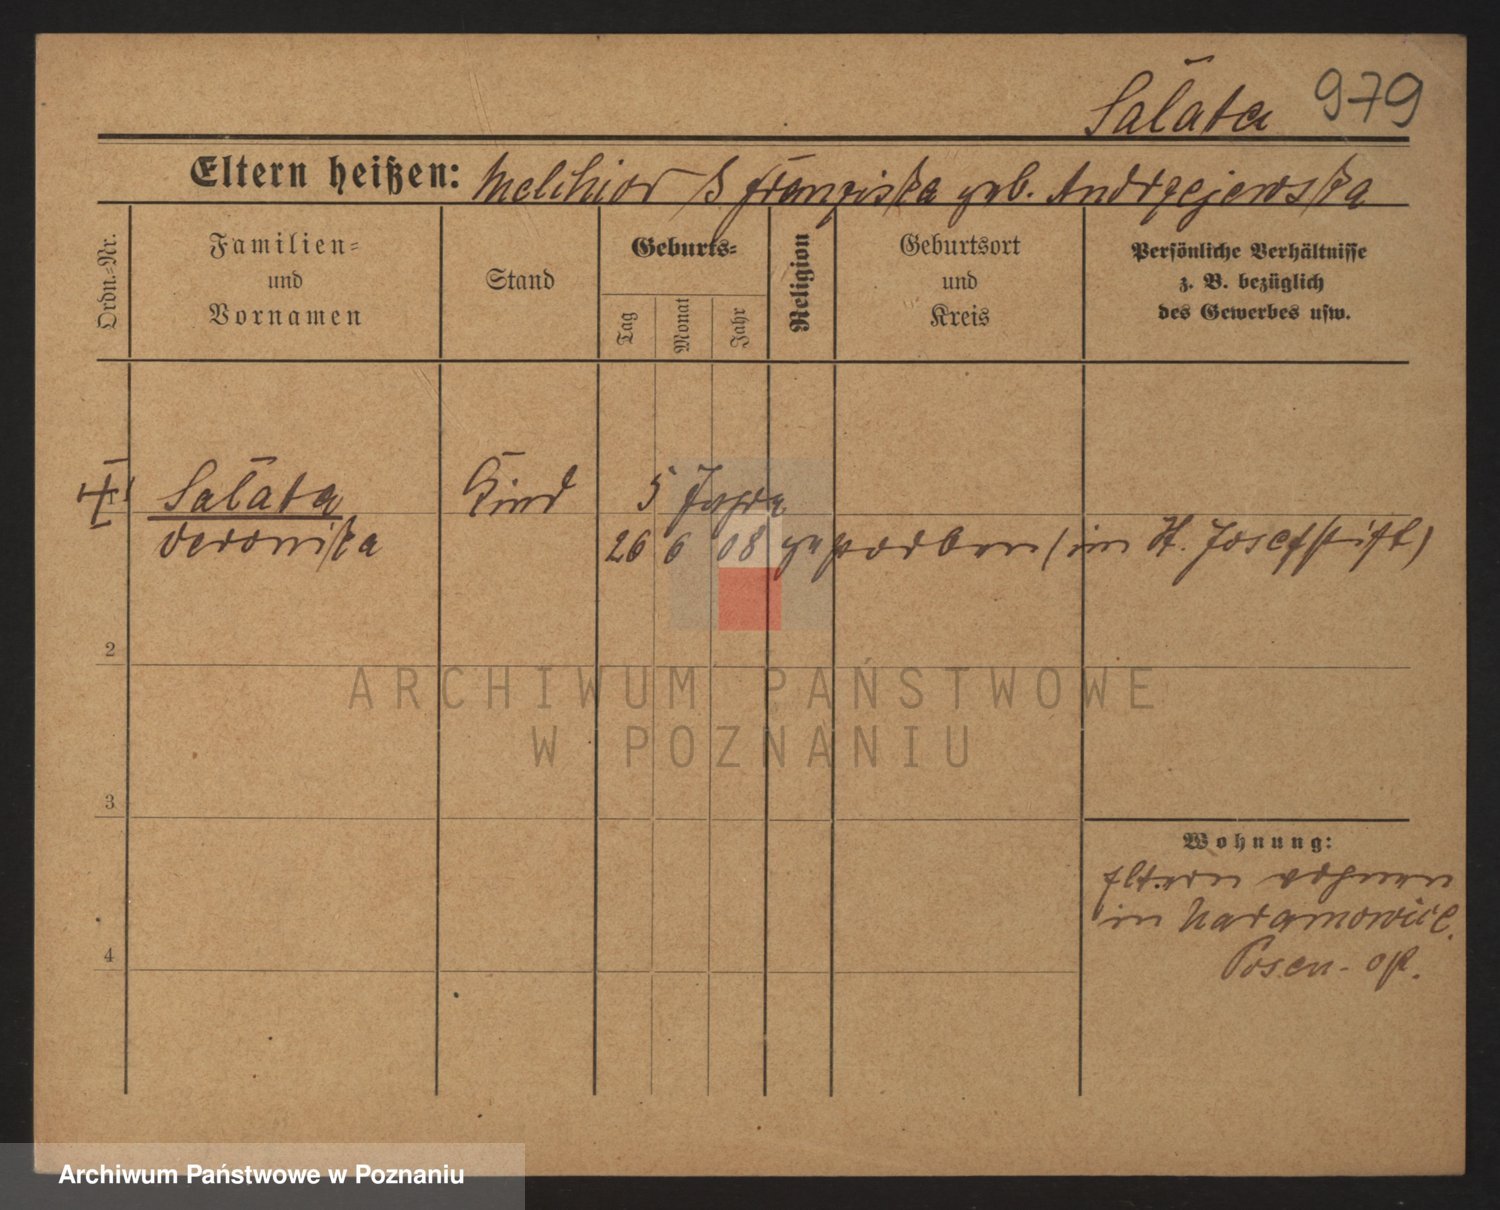 Salata 979
Eltern heißen: Melchior & Franziska geb. Andrzejewska
Ordn.=Nr.
Familien=
und
Vornamen
Stand
Geburts=
Tag
Monat
Jahr
Religion
Geburtsort
und
Kreis
Persönliche Verhältnisse
z. B. bezüglich
des Gewerbes usw.
Salata Kind 5 Jahre
Veronika 26 6 08 gestorben (im St. Josefstift)
2
3
4
Wohnung:
Eltern wohnen
in Naramowice
Posen-
ARCHIWUM PAŃSTWOWE
W POZNANIU
Archiwum Państwowe w Poznaniu